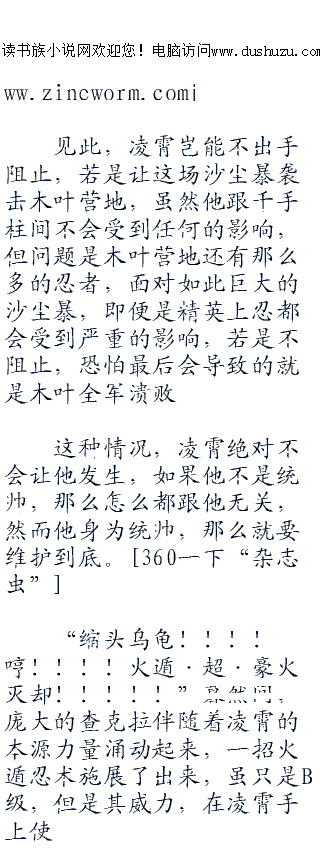 读书族小说网欢迎您！电脑访问www.dushuzu.com
ww.zincworm.comi
见此，凌霄岂能不出手
阻止，若是让这场沙尘暴袭
击木叶营地，虽然他跟千手
柱间不会受到任何的影响，
但问题是木叶营地还有那么
多的忍者，面对如此巨大的
沙尘暴，即便是精英上忍都
会受到严重的影响，若是不
阻止，恐怕最后会导致的就
是木叶全军溃败
这种情况，凌霄绝对不
会让他发生，如果他不是统
帅，那么怎么都跟他无关，
然而他身为统帅，那么就要
维护到底。[360一下“杂志
虫”]
“缩头乌龟！！！！
哼！！！！火遁·超·豪火
灭却！！！！！”蓦然间，
庞大的查克拉伴随着凌霄的
本源力量涌动起来，一招火
遁忍术施展了出来，虽只是B
级，但是其威力，在凌霄手
上使